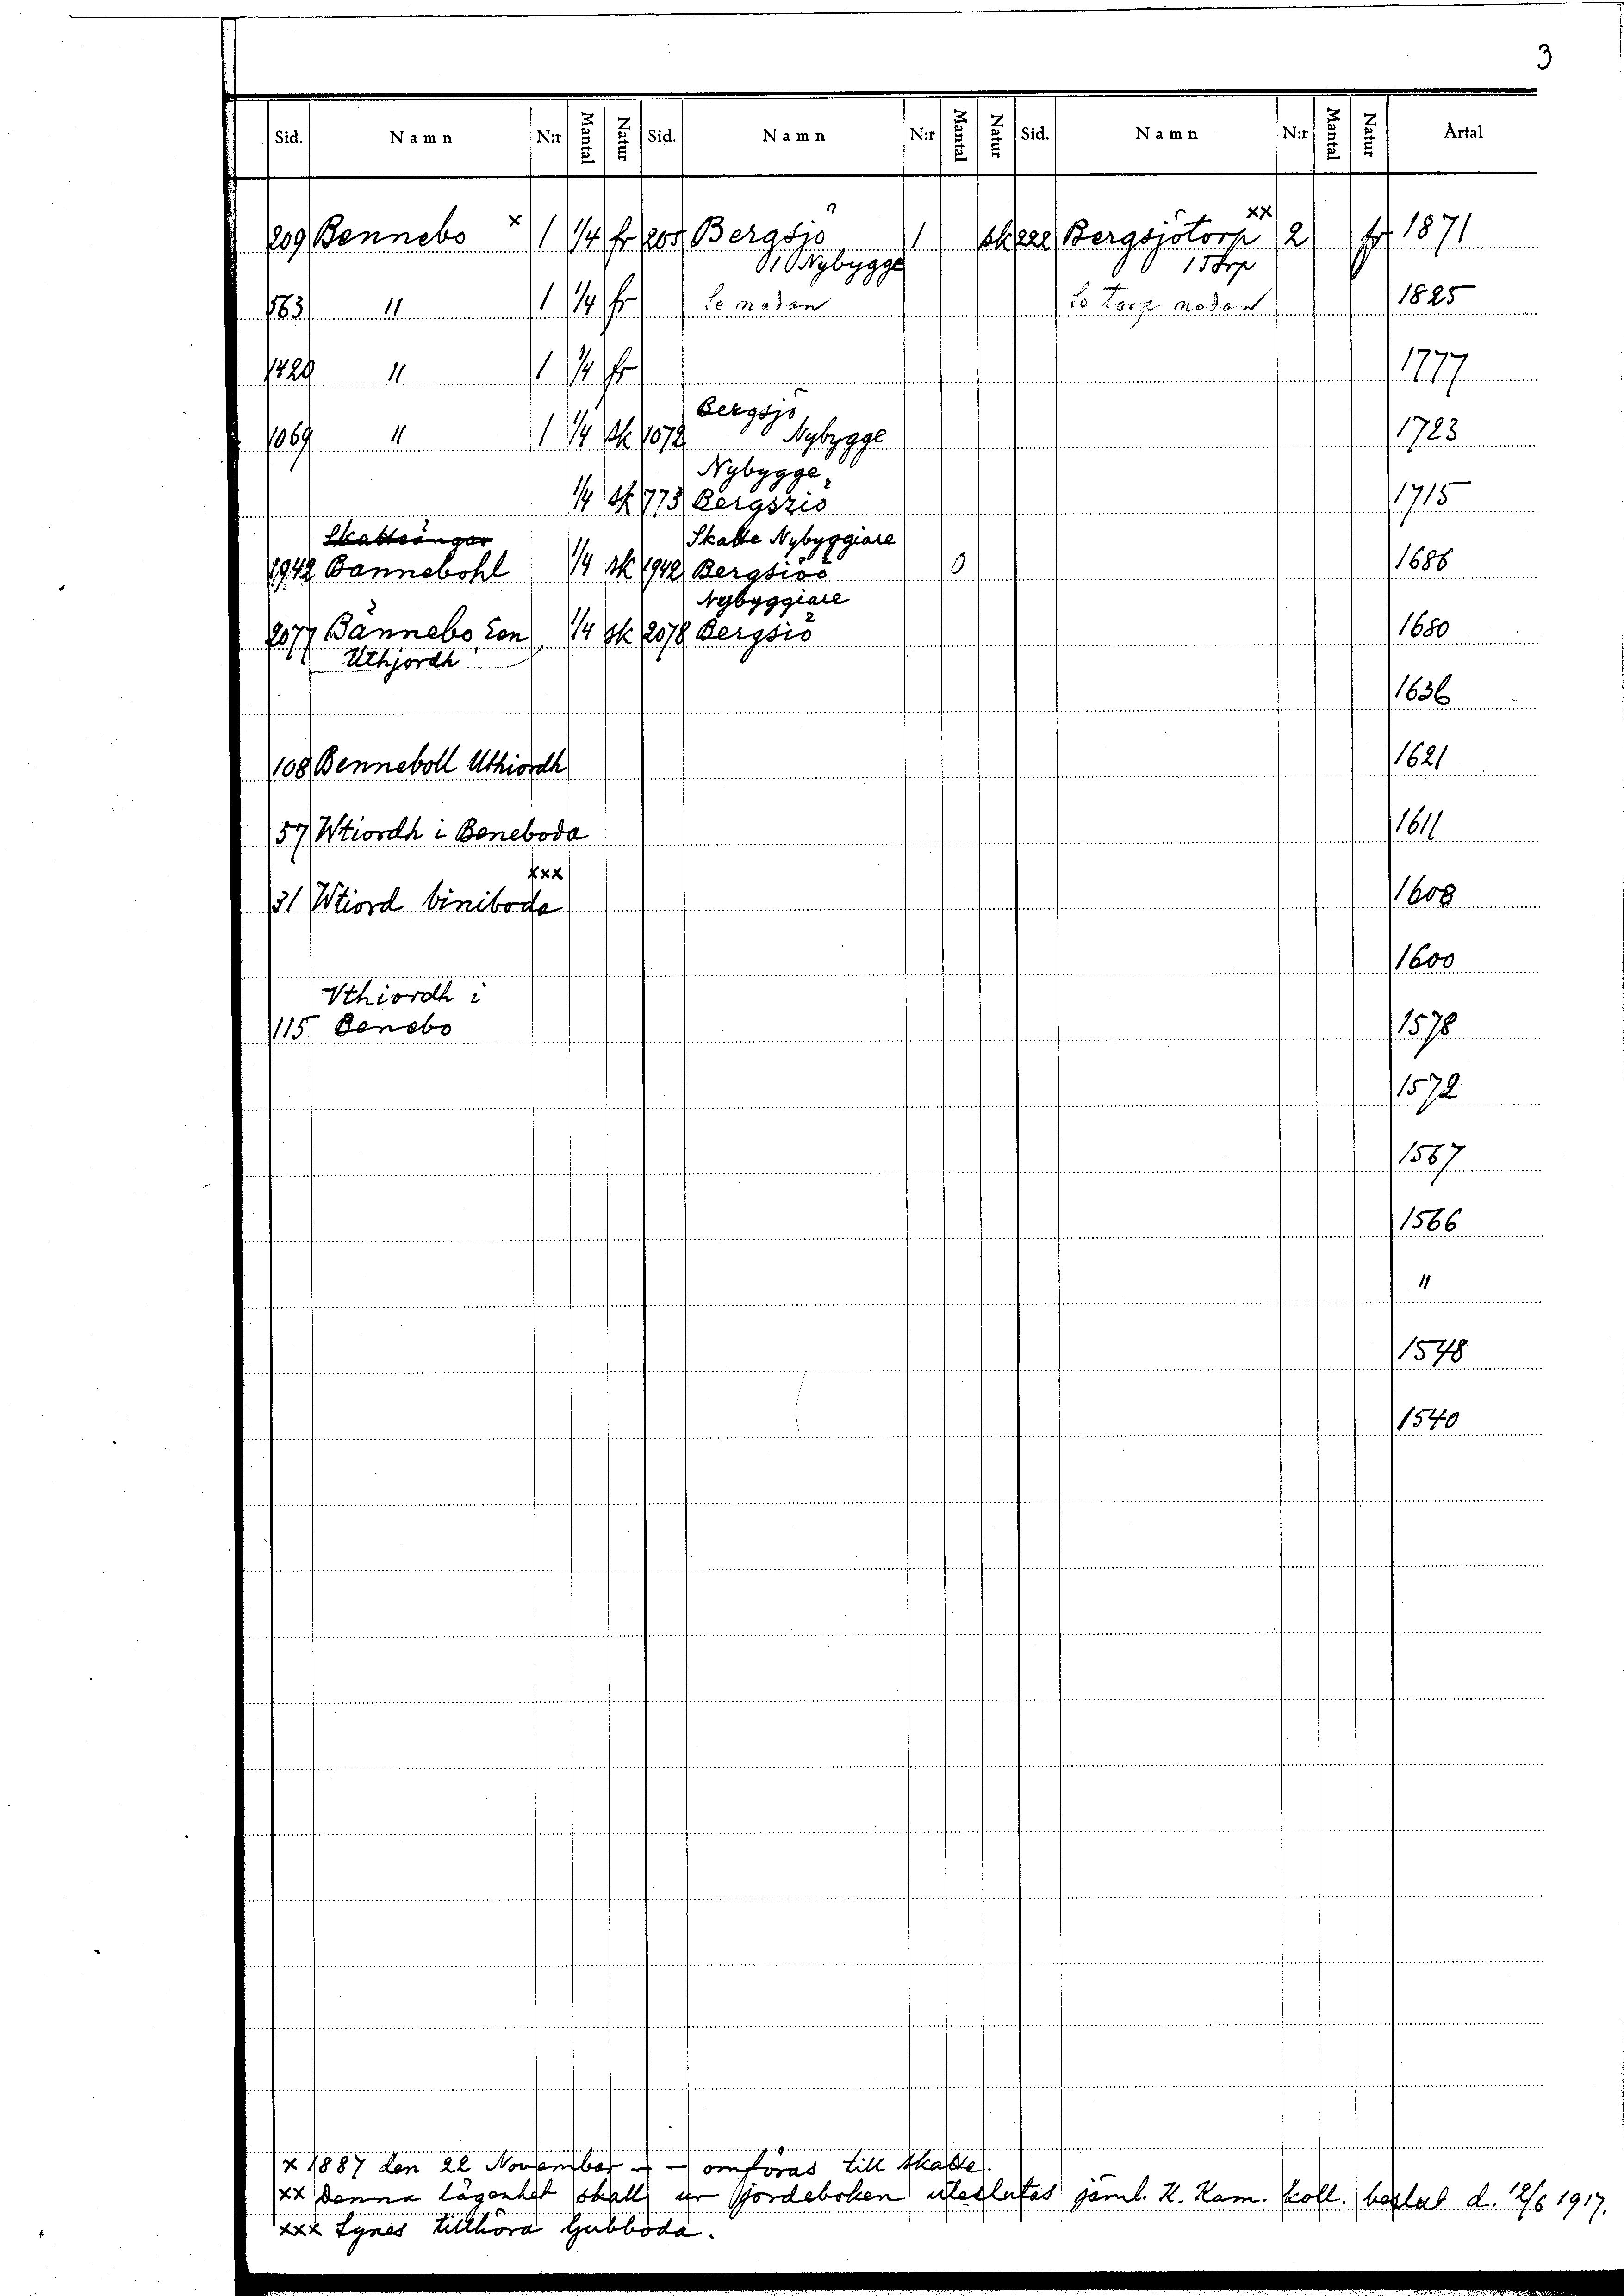 3
Sid. Namn N:r Mantal Natur Sid. Namn N:r Mantal Natur Sid. Namn N:r Mantal Natur Årtal
209 Bennebo x 1 1/4 fr 205 Bergsjö 1 sk 222 Bergsjötorp xx 2 fr 1871
1 Nybygge 1 Torp
563 " 1 1/4 fr Se nedan Se Torp nedan 1825
1420 " 1 1/4 fr 1777
Bergsjö
1069 " 1 1/4 sk 1072 Nybygge 1723
Nybygge
1/4 sk 773 Bergsziö 1715
Skatteängar Skatte Nybyggiare
1942 Bannebohl 1/4 sk 1942 Bergsiöö 0 1686
Nybyggiare
2077 Bännebo Een 1/4 sk 2078 Bergsiö 1680
Uthjordh
1636
108 Benneboll Uthiordh 1621
57 Wtiordh i Beneboda 1611
xxx
31 Wtiord biniboda 1608
1600
Vthiordh i
115 Benebo 1578
1572
1567
1566
"
1548
1540
x 1887 den 22 November - - omföras till skatte.
xx Denna lägenhet skall ur jordeboken uteslutas jäml. K. Kam. Koll. beslut d. 12/6 1917.
xxx Synes tillhöra Gubboda.